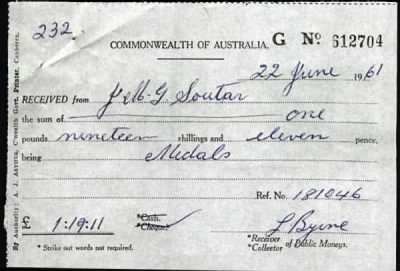 232
COMMONWEALTH OF AUSTRALIA. G No. 612704
22 June 1961
RECEIVED from J M. G Soutar
the sum of one
pounds nineteen shillings and eleven pence,
being Medals
Ref. No. 181046
£ 1:19:11 *Cash. *Cheque. L Byrne
*Receiver
*Collector of Public Moneys.
* Strike out words not required.
By Authority: A. J. Arthur, C'wealth Govt. Printer, Canberra.